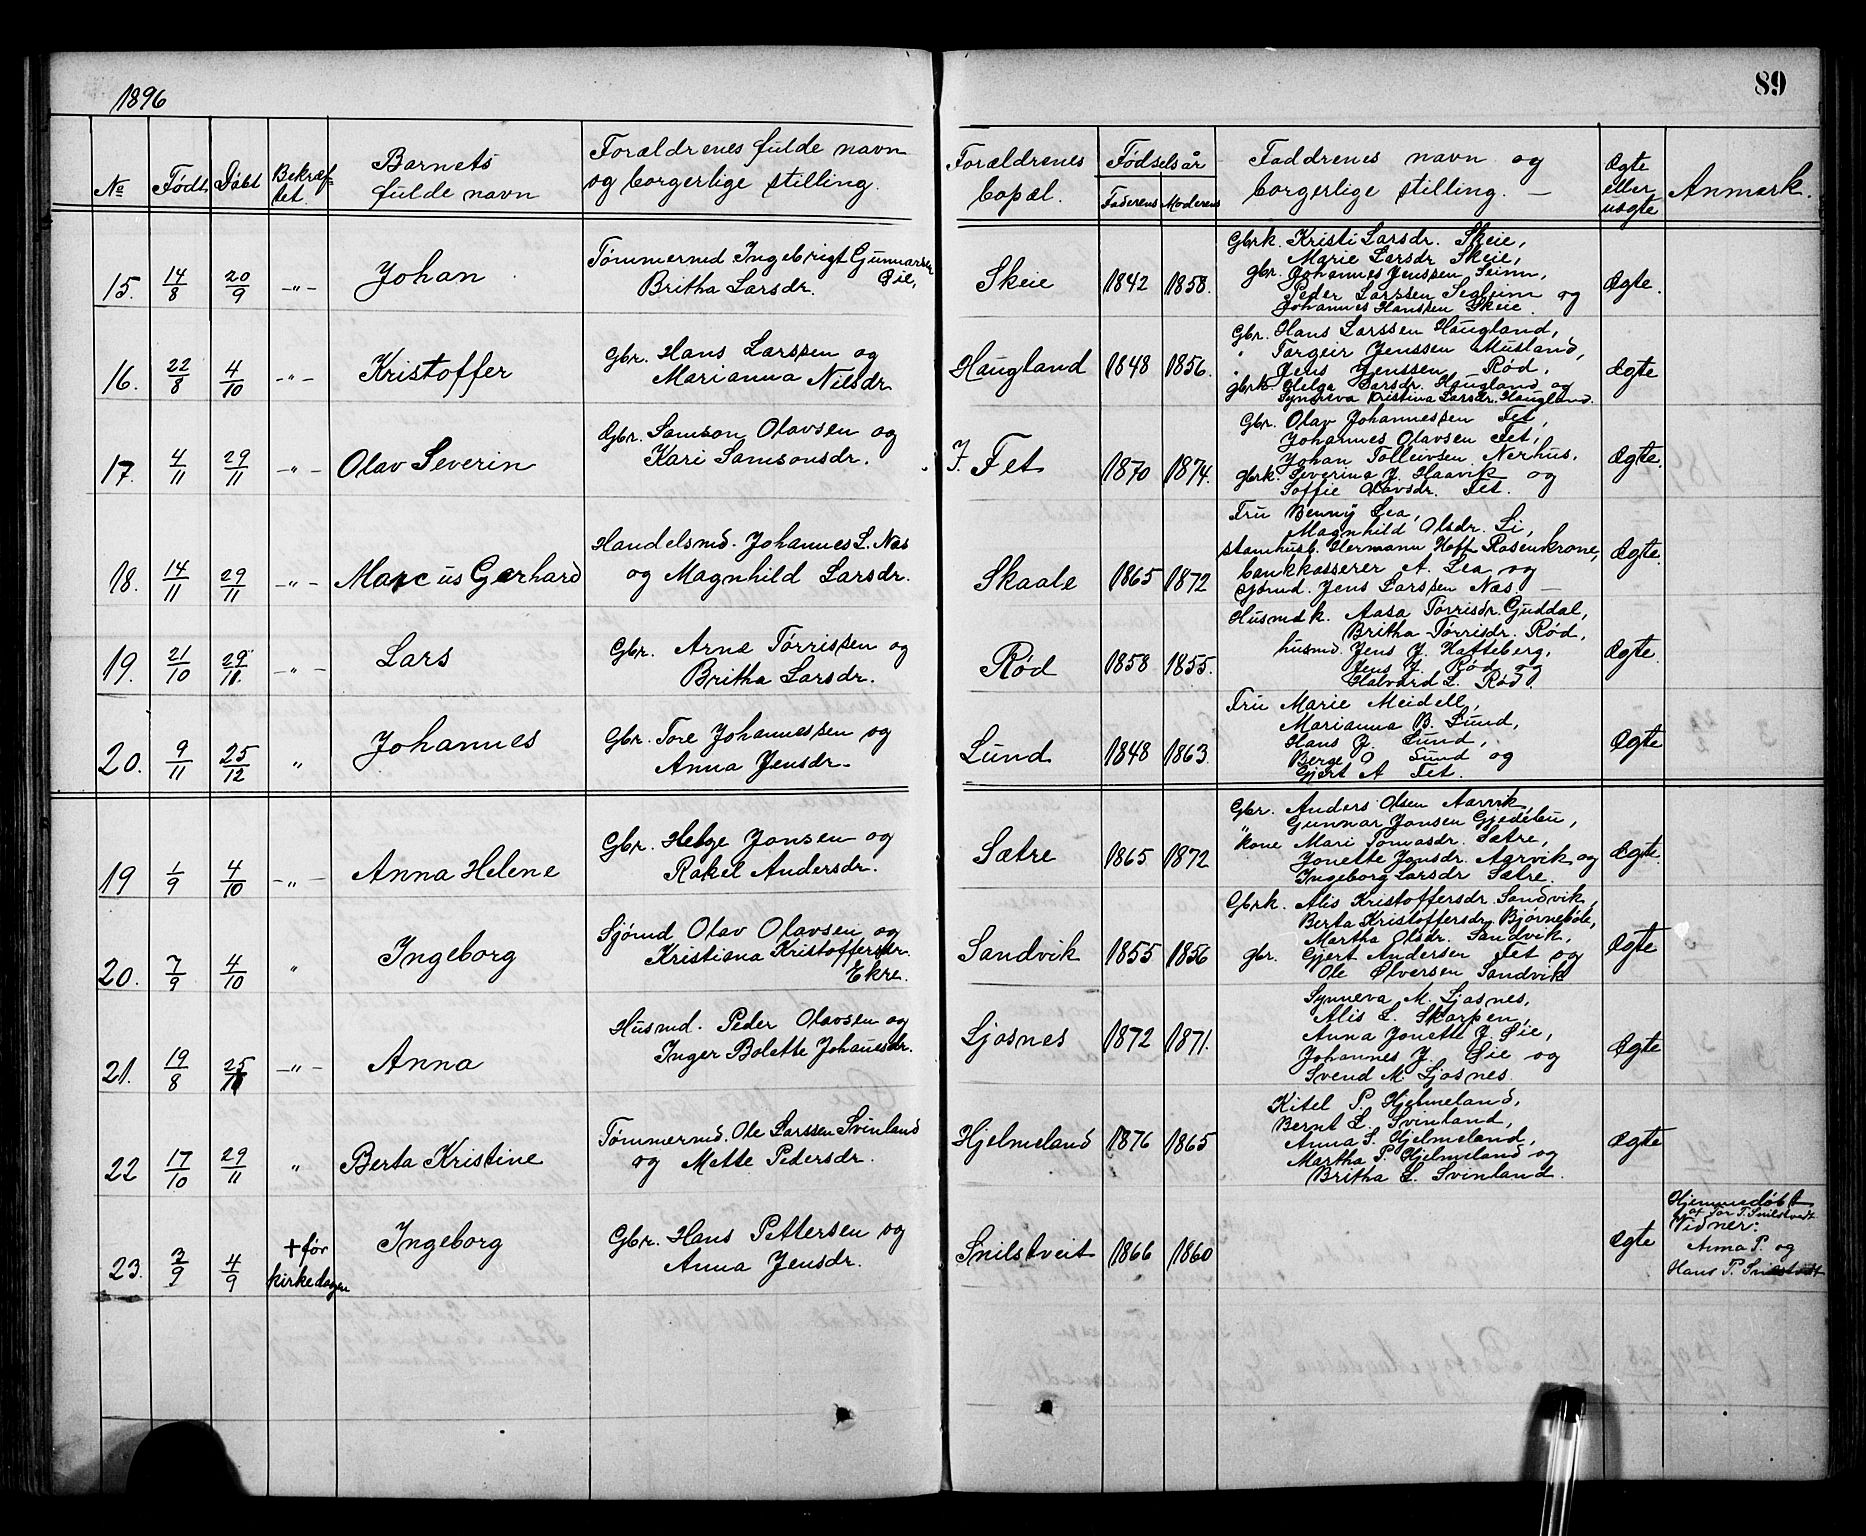 1896
89
No Født Døbt Bekræf-
tet. Barnets
fulde navn Forældrenes fulde navn
og borgerlige stilling. Forældrenes
bopæl. Fødselsår
Faderens Moderens Faddrenes navn og
borgerlige stilling. Ægte
eller
uægte Anmærk.
15. 14/8 20/9 -"- Johan
Tømmermd Ingebrigt Gunnarsen
Øie,
Britha Larsdr.
Skeie 1842 1858.
Gbrk. Kristi Larsdr. Skeie,
Marie Larsdr Skeie,
gbr. Johannes Jenssen Seim,
Peder Larssen Segleim og
Johannes Hanssen Skeie.
Ægte.
16. 22/8 4/10 -"- Kristoffer
Gbr. Hans Larssen og
Marianna Nilsdr.
Haugland 1848 1856.
Gbr. Hans Larssen Haugland,
" Torgeir Jenssen Musland,
" Jens Jenssen Rød,
gbrk. Helga Larsdr. Haugland og
Synneva Kristina Larsdr. Haugland.
Ægte
17. 4/11 29/11 -"- Olav Severin
Gbr. Samson Olavsen og
Kari Samsonsdr.
Y. Fet 1870 1874.
Gbr. Olav Johannessen Fet,
Johannes Olavsen Fet,
Johan Tolleivsen Nerhus,
gbrk. Severina J. Haavik og
Soffie Olavsdr. Fet.
Ægte.
18. 14/11 29/11 -"- Marcus Gerhard
Handelsmd. Johannes L. Næs
og Magnhild Larsdr.
Skaale 1865 1872
Fru Benny Lea,
Magnhild Olsdr. Li,
stamhusb. Hermann Hoff Rosenkrone,
bankkasserer A. Lea og
Sjømd. Jens Larssen Næs —
Ægte.
19. 21/10 29/11. -"- Lars
Gbr. Arne Tørrissen og
Britha Larsdr.
Rød 1858 1855.
Husmdk. Aasa Tørrisdr. Guddal,
Britha Tørrisdr. Rød,
husmd. Jens J. Hatteberg,
Jens J. Rød og
Halvard L. Rød.
Ægte.
20. 9/11 25/12 " Johannes
Gbr. Tore Johannessen og
Anna Jensdr.
Lund 1848 1863.
Fru Marie Meidell,
Marianna B. Lund,
Hans J. Lund,
Berge O Lund og
Gjert A Fet.
Ægte
19 1/9 4/10 -"- Anna Helene
Gbr. Helge Jonsen og
Rakel Andersdr.
Sætre 1865 1872
Gbr. Anders Olsen Aarvik,
" Gunnar Jonsen Gjedebu,
kone Mari Tomasdr. Sætre,
Jonette Jonsdr. Aarvik og
Ingeborg Larsdr Sætre.
Ægte.
20. 7/9 4/10 " Ingeborg
Sjømd Olav Olavsen og
Kristiana Kristoffersdr.
Ekre.
Sandvik 1855 1856
Gbrk. Alis Kristoffersdr. Sandvik,
Berta Kristoffersdr Bjørnebøle,
Martha Olsdr. Sandvik,
gbr. Gjert Andersen Fet og
Ole Ølversen Sandvik
Ægte
21. 19/8 25/11 -"- Anna
Husmd. Peder Olavsen og
Inger Bolette Johanesdr.
Ljosnes 1872 1871.
Synneva M. Ljosnes,
Alis L. Skarpen,
Anna Jonette J. Øie,
Johannes J. Øie og
Svend M. Ljosnes.
Ægte
22 17/10 29/11 " Berta Kristine
Tømmermd. Ole Larssen Svinland
og Mette Pedersdr.
Hjelmeland 1876 1865
Kitel P. Hjelmeland,
Bernt L. Svinland,
Anna S. Hjelmeland,
Martha P. Hjelmeland og
Britha L. Svinland.
Ægte
23. 3/9 4/9 + før
kirkedagen Ingeborg
Gbr. Hans Pettersen og
Anna Jensdr.
Snilstveit 1866 1860
Ægte
Hjemmedøbt
af Tor T. Snilstveit
Vidner:
Anna P. og
Hans P. Snilstveit